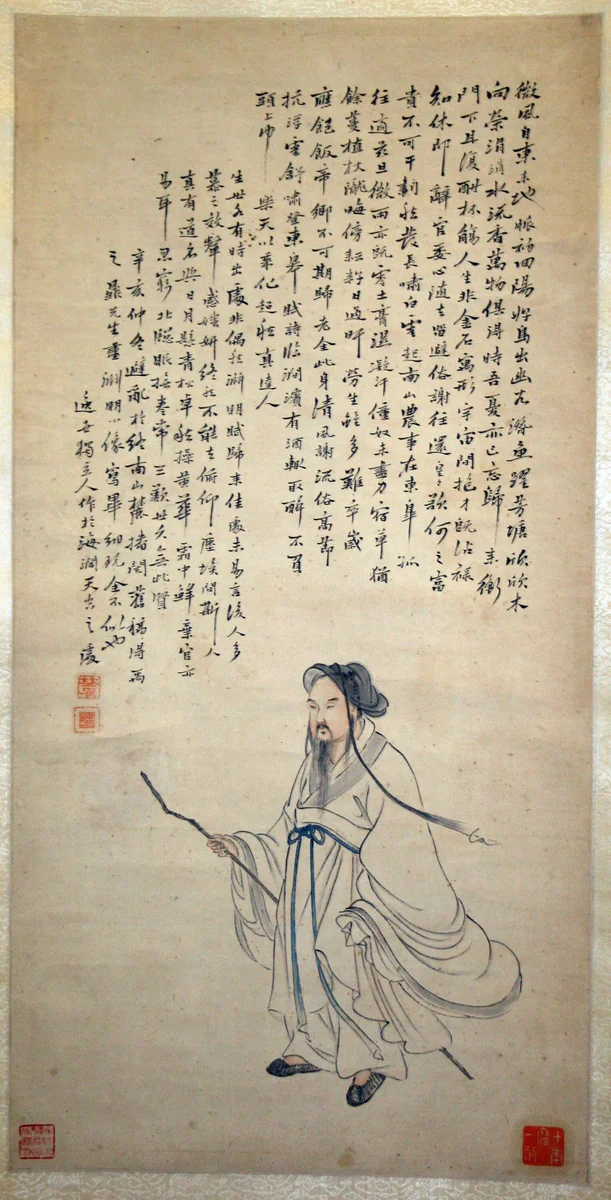 微風自東來地脈初回陽好鳥出幽谷潛魚躍芳塘欣欣木
向榮涓涓水流香萬物俱得時吾憂亦已忘歸來衡
門下且復酣杯觴人生非金石寓形宇宙間抱才既沾祿
知休即辭官委心隨去留避俗謝往還皇皇欲何之富
貴不可干翻然發長嘯白雲起南山農事在東皋孤
往適茲旦微雨亦既零土膏濕凝汗僮奴未盡力宿草猶
餘蔓植杖隴畝傍耘耔日過旰勞生雖多難卒歲
應飽飯帝鄉不可期歸老全此身清風謝流俗高節
抗浮雲舒嘯登東皋賦詩臨澗濱有酒輒取醉不負
頭上巾 樂天以乘化起然真達人
生世各有時出處非偶然淵明賦歸來佳處未易言後人多
慕之效顰感媸妍終然不能去俯仰塵埃間斯人
真有道名與日月懸青松卓然操黃華霜中鮮棄官亦
易耳忍窮北牕眠撫卷常三歎世久無此賢
辛亥仲冬避亂於終南山麓閱舊稿得馬
之鼎先生畫淵明小像寫畢細玩全不似也
獨立人作於海澗天空之處